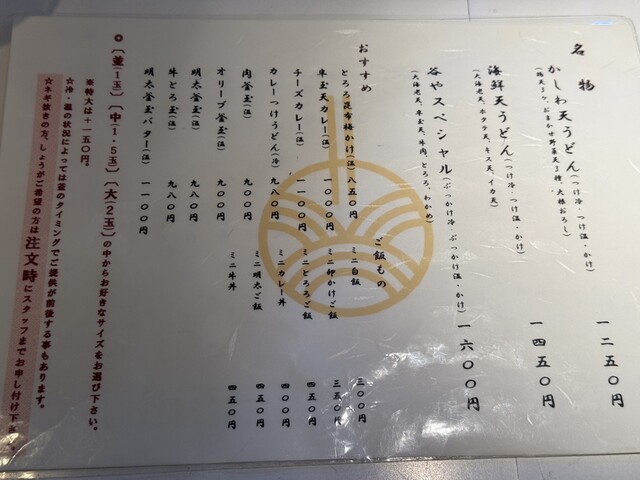 名物
かしわ天うどん(つけ冷・つけ温・かけ) 一二五〇円
(鶏天3ケ、おまかせ野菜天3種、大根おろし)
海鮮天うどん(つけ冷・つけ温・かけ) 一四五〇円
(大海老天、ホタテ天、キス天、イカ天)
谷やスペシャル(ぶっかけ冷・ぶっかけ温・かけ) 一六〇〇円
(大海老天、半玉天、牛肉、とろろ、わかめ)
おすすめ
とろろ昆布梅かけ(温) 八五〇円
半玉天カレー(温) 一〇〇〇円
チーズカレー(温) 一一〇〇円
カレーつけうどん(冷) 九八〇円
肉釜玉(温) 九〇〇円
オリーブ釜玉(温) 九〇〇円
明太釜玉(温) 九八〇円
牛とろ玉(温) 九八〇円
明太釜玉バター(温) 一一〇〇円
ご飯もの
ミニ白飯 三〇〇円
ミニ卵かけご飯 三五〇円
ミニとろろご飯 四五〇円
ミニカレー丼 四〇〇円
ミニ明太ご飯 四五〇円
ミニ牛丼 四五〇円
◎〔並(1玉)〕〔中(1.5玉)〕〔大(2玉)〕の中からお好きなサイズをお選び下さい。
※特大は+一五〇円。
☆冷・温の状況によっては釜のタイミングでご提供が前後する事もあります。
☆ネギ抜きの方、しょうがご希望の方は注文時にスタッフまでお申し付け下さい。